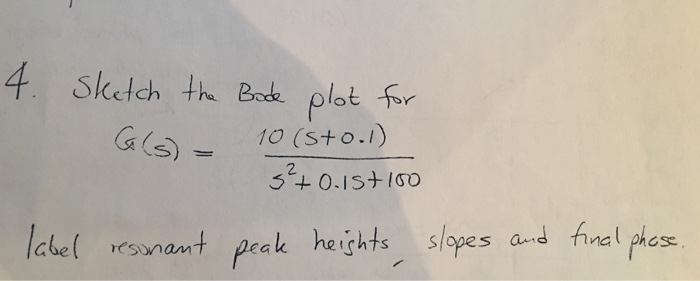 4. Sketch the Bode plot for
G(s) = 10 (s+0.1)
s²+0.1s+100
label resonant peak heights, slopes and final phase.